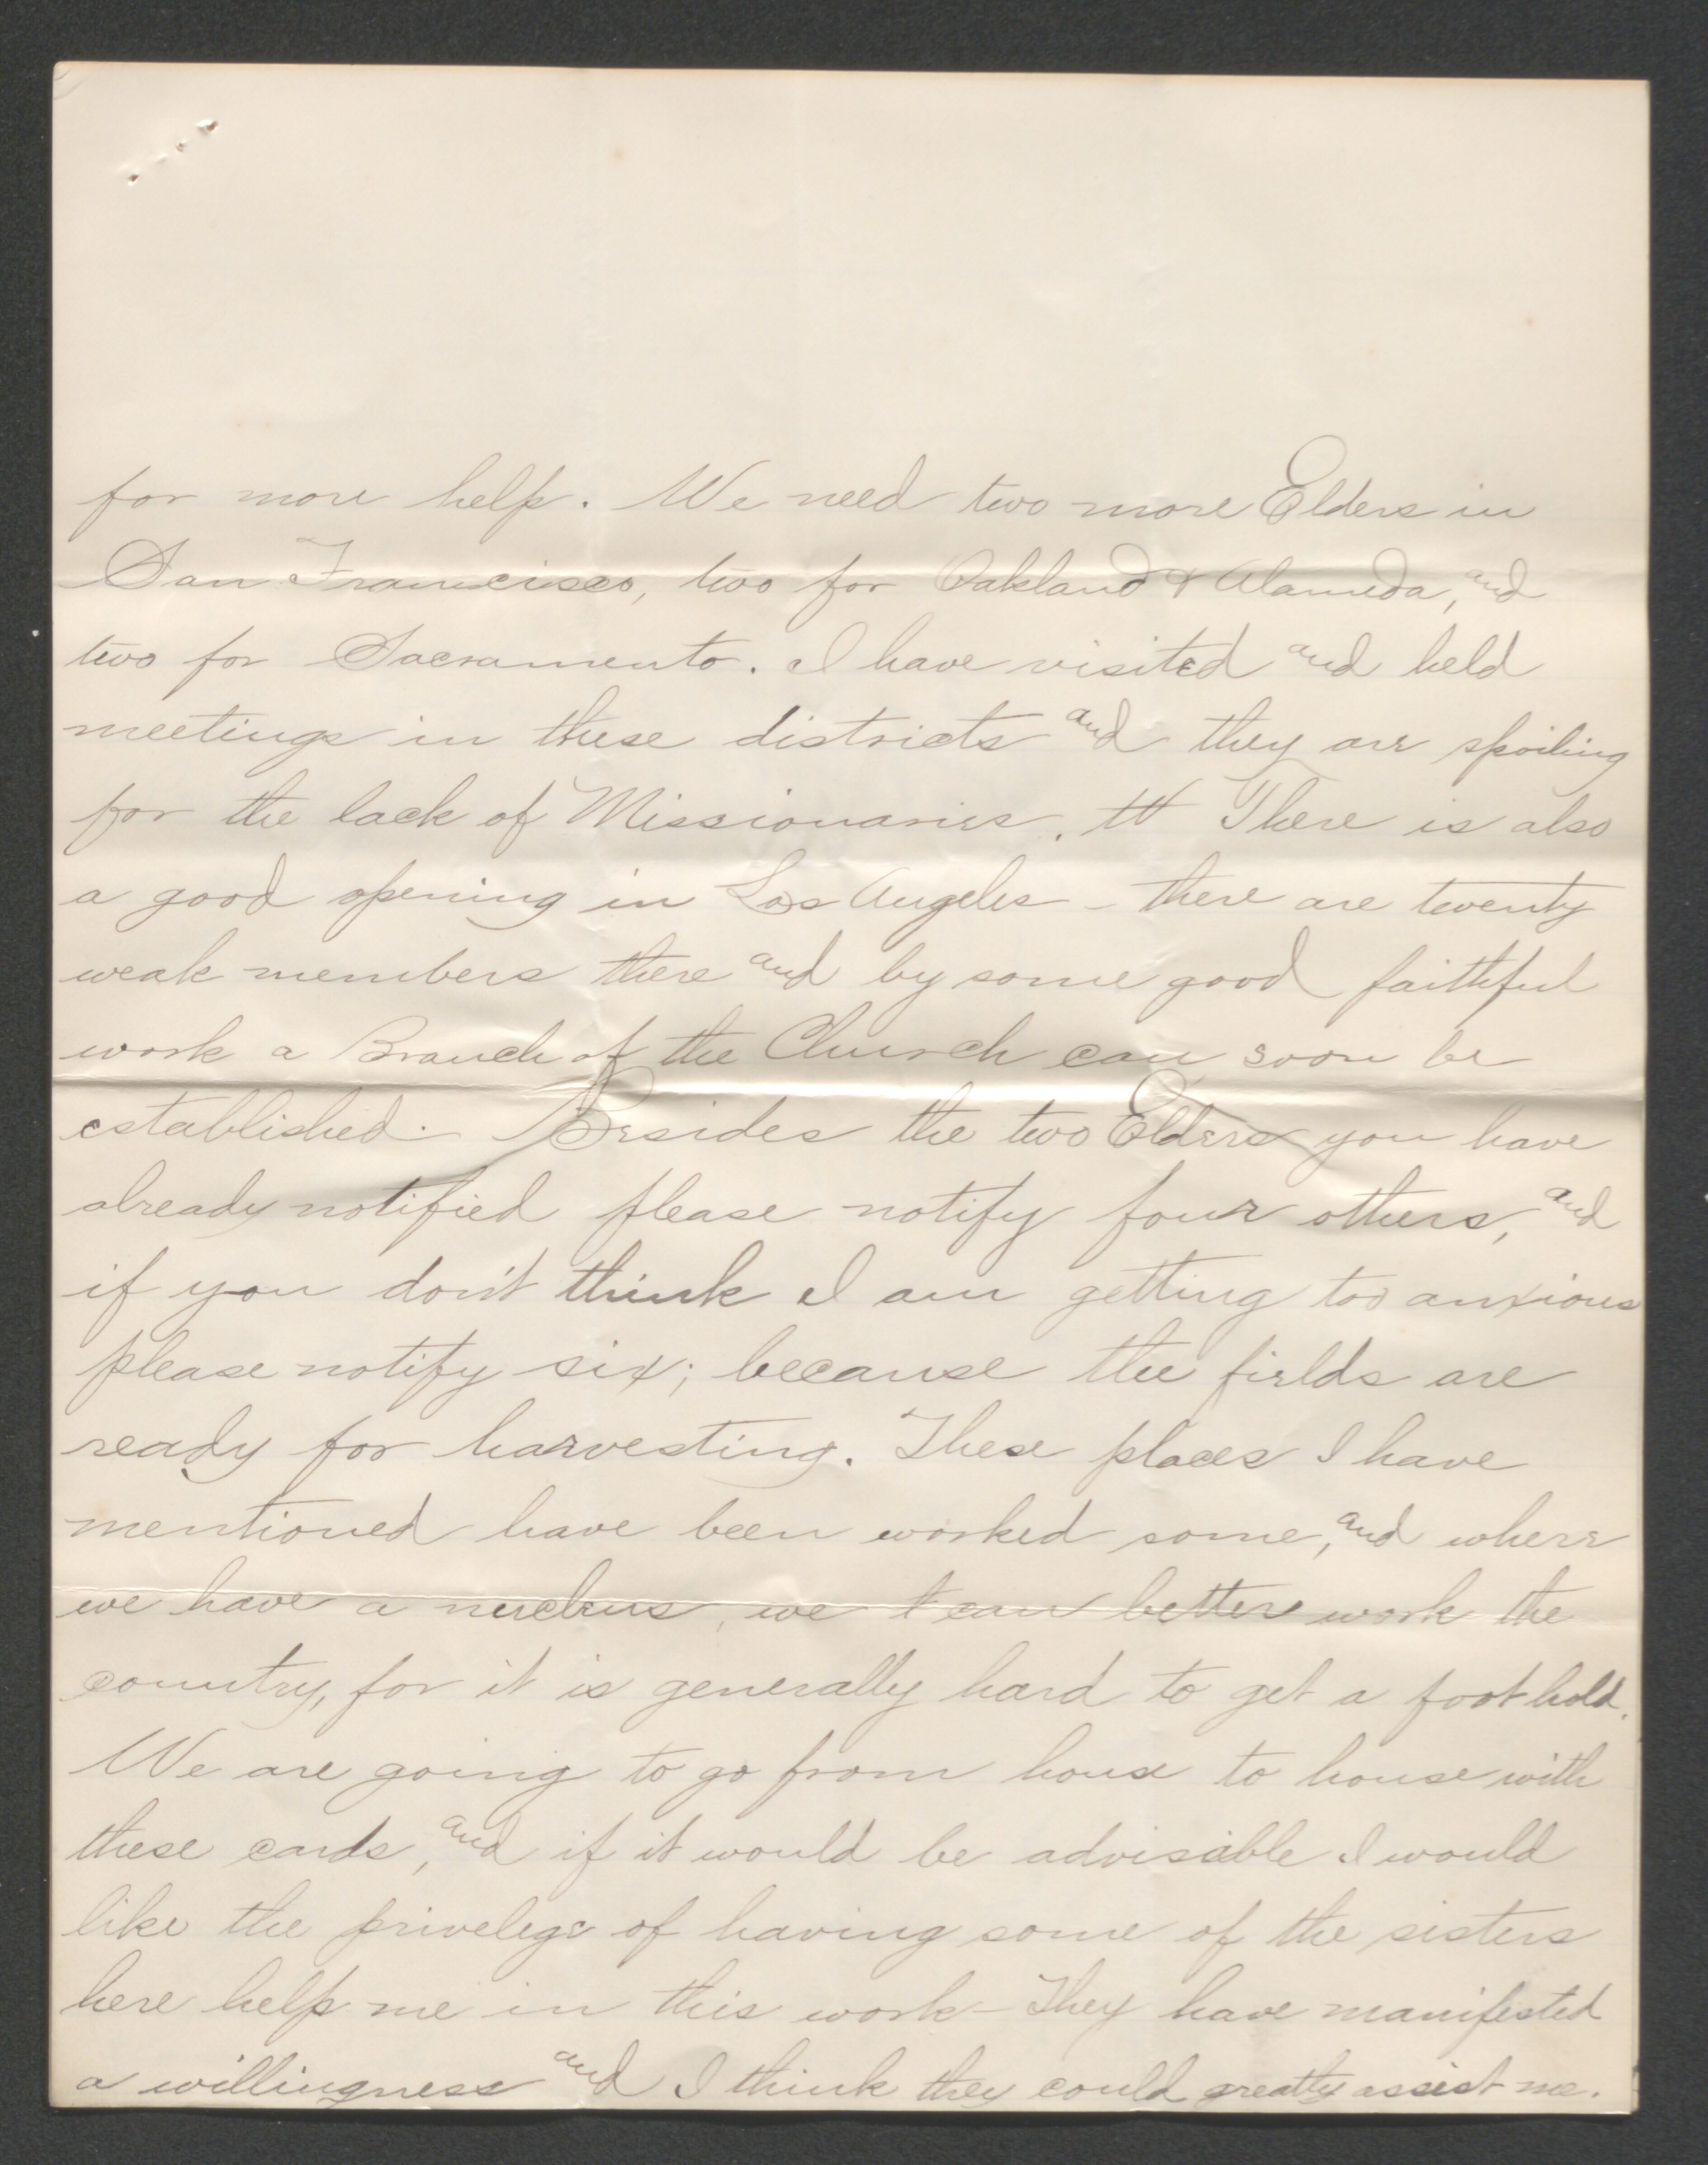 for more help. We need two more Elders in
San Francisco, two for Oakland & Alameda, and
two for Sacramento. I have visited and held
meetings in these districts and they are spoiling
for the lack of Missionaries. There is also
a good opening in Los Angeles - there are twenty
weak members there and by some good faithful
work a Branch of the Church can soon be
established. Besides the two Elders you have
already notified please notify four others, and
if you don't think I am getting too anxious
please notify six; because the fields are
ready for harvesting. These places I have
mentioned have been worked some, and where
we have a nucleus, we can better work the
country, for it is generally hard to get a foot hold.
We are going to go from house to house with
these cards, and if it would be advisable I would
like the privelege of having some of the sisters
here help me in this work - They have manifested
a willingness and I think they could greatly assist me.